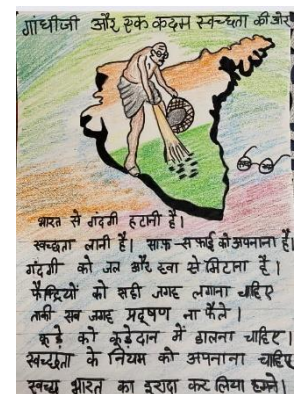 गांधीजी और एक कदम स्वच्छता की ओर
भारत से गंदगी हटानी है।
स्वच्छता लानी है। साफ-सफाई को अपनाना है।
गंदगी को जल और हवा से मिटाना है।
फैक्ट्रियों को सही जगह लगाना चाहिए
ताकी सब जगह प्रदूषण ना फैले।
कूड़े को कूड़ेदान में डालना चाहिए।
स्वच्छता के नियम को अपनाना चाहिए
स्वच्छ भारत का इरादा कर लिया हमने।